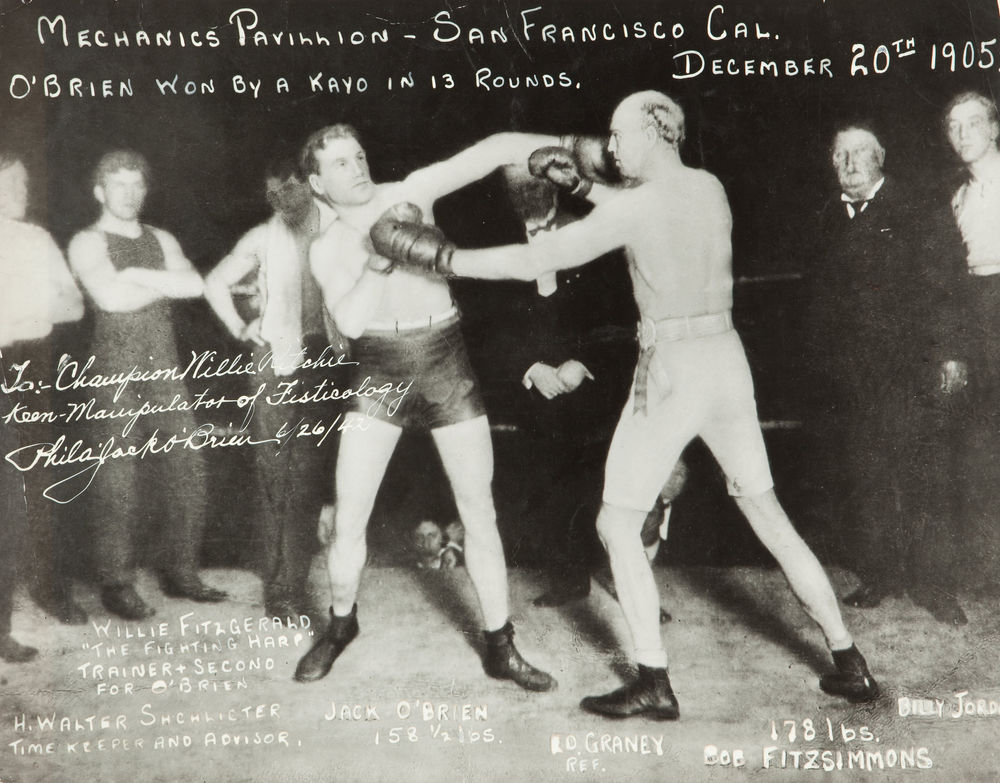 MECHANICS PAVILLION - SAN FRANCISCO CAL.
DECEMBER 20TH 1905.
O'BRIEN WON BY A KAYO IN 13 ROUNDS.
To:- "Champion Willie Ritchie
Keen-Manipulator of Fisticology
Phila Jack O'Brien 6/26/42
WILLIE FITZGERALD
"THE FIGHTING HARP"
TRAINER + SECOND
FOR O'BRIEN
H. WALTER SHCHLICTER
TIME KEEPER AND ADVISOR.
JACK O'BRIEN
158 1/2 lbs.
ED. GRANEY
REF.
178 lbs.
BOB FITZSIMMONS
BILLY JORD